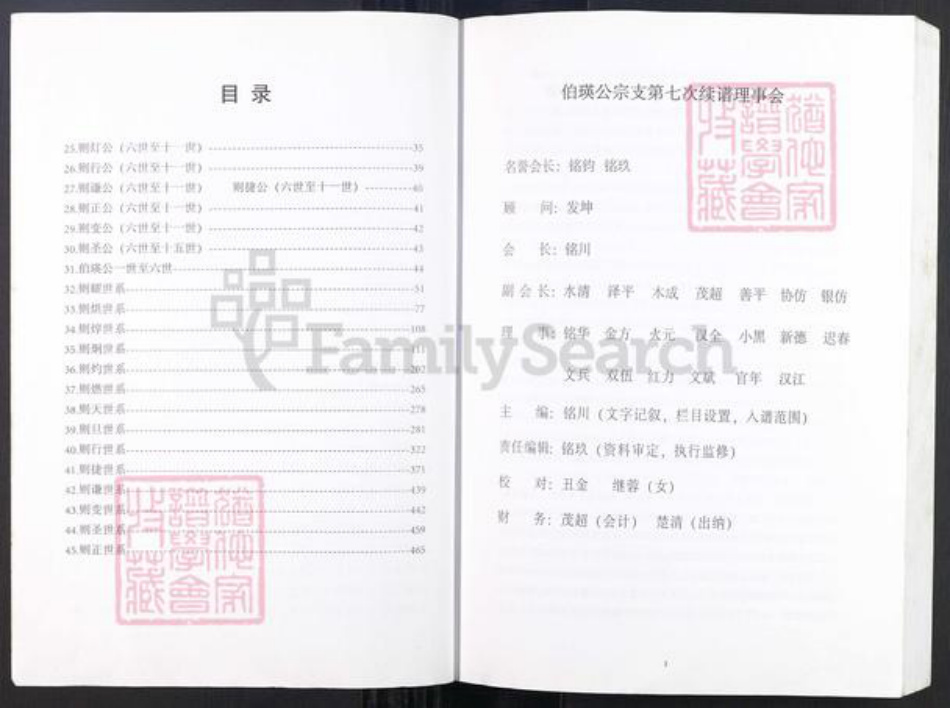 目 录
25.则灯公（六世至十一世）35
26.则行公（六世至十一世）39
27.则谦公（六世至十一世） 则捷公（六世至十一世）40
28.则正公（六世至十一世）41
29.则变公（六世至十一世）42
30.则圣公（六世至十五世）43
31.伯瑛公一世至六世44
32.则耀世系51
33.则烘世系77
34.则焞世系108
35.则炯世系
36.则灼世系202
37.则燃世系265
38.则天世系278
39.则旦世系281
40.则行世系322
41.则捷世系371
42.则谦世系439
43.则变世系442
44.则圣世系459
45.则正世系465
伯瑛公宗支第七次续谱理事会
名誉会长：铭钧 铭玖
顾 问：发坤
会 长：铭川
副会长：水清 泽平 木成 茂超 善平 协仿 银仿
理 事：铭华 金方 火元 汉全 小黑 新德 迟春
文兵 双伍 红力 文斌 官年 汉江
主 编：铭川（文字记叙，栏目设置，入谱范围）
责任编辑：铭玖（资料审定，执行监修）
校 对：丑金 继蓉（女）
财 务：茂超（会计） 楚清（出纳）
FamilySearch